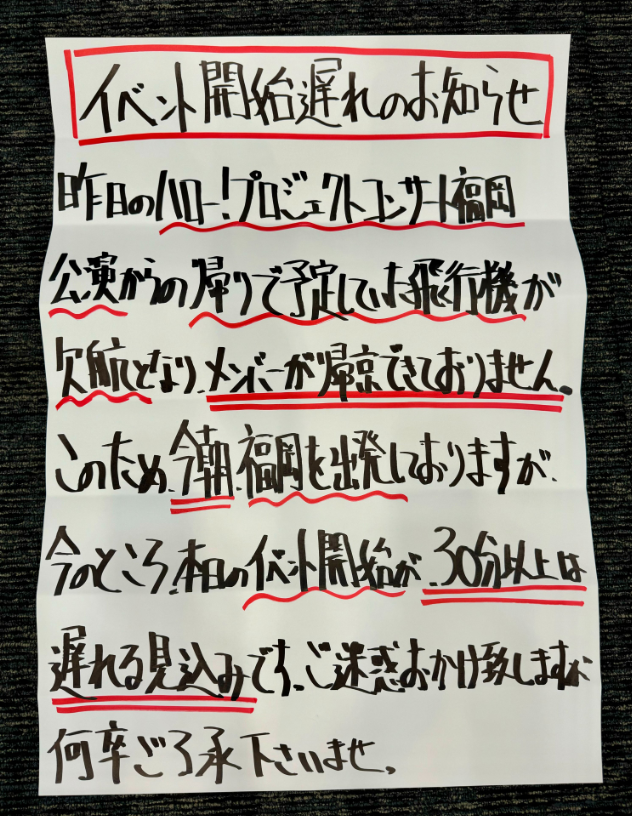 イベント開始遅れのお知らせ
昨日のハロー!プロジェクトコンサート福岡
公演からの帰りで予定していた飛行機が
欠航となり、メンバーが帰京できておりません。
このため、今朝、福岡を出発しておりますが、
今のところ、本日のイベント開始が、30分以上は
遅れる見込みです。ご迷惑おかけ致しますが
何卒ご了承下さいませ。